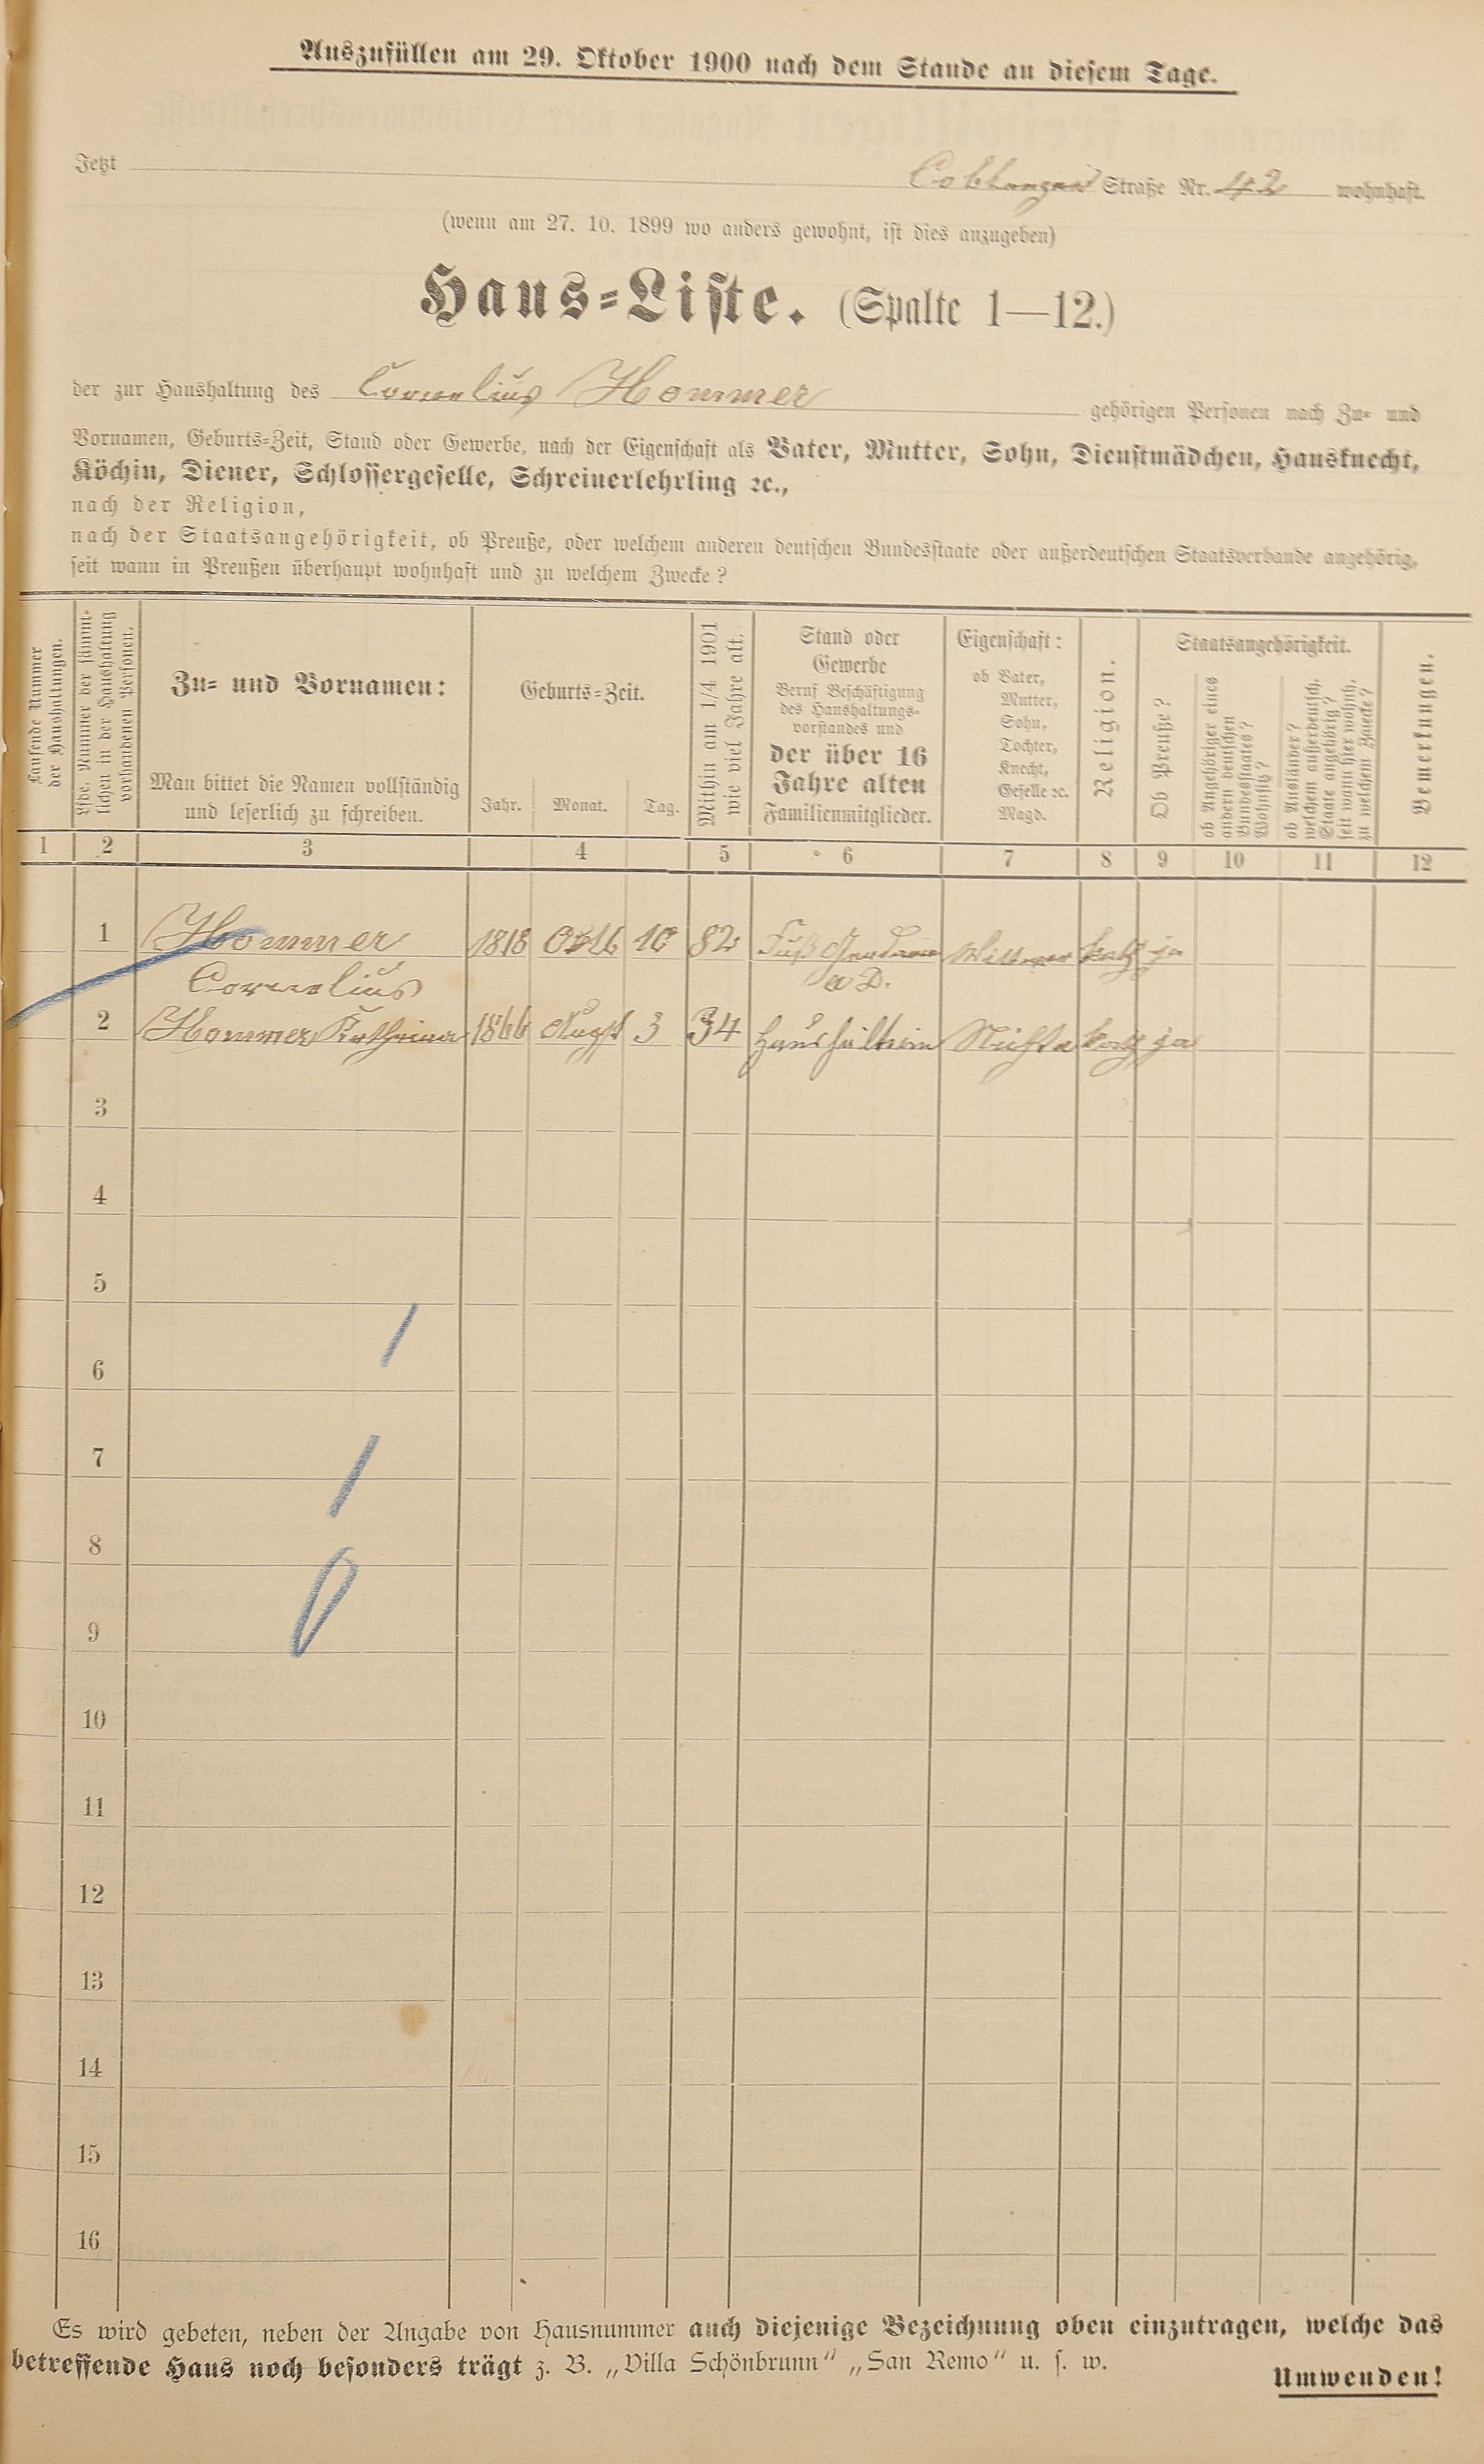 Auszufüllen am 29. Oktober 1900 nach dem Stande an diesem Tage.
Jetzt Coblenzer Straße Nr. 42 wohnhaft.
(wenn am 27. 10. 1899 wo anders gewohnt, ist dies anzugeben)
Haus-Liste. (Spalte 1—12.)
der zur Haushaltung des Cornelius Hommer gehörigen Personen nach Zu- und
Vornamen, Geburts-Zeit, Stand oder Gewerbe, nach der Eigenschaft als Vater, Mutter, Sohn, Dienstmädchen, Hausknecht,
Köchin, Diener, Schlossergeselle, Schreinerlehrling ꝛc.,
nach der Religion,
nach der Staatsangehörigkeit, ob Preuße, oder welchem anderen deutschen Bundesstaate oder außerdeutschen Staatsverbande angehörig,
seit wann in Preußen überhaupt wohnhaft und zu welchem Zwecke?
Laufende Nummer
der Haushaltungen.
Lfde. Nummer der sämmt-
lichen in der Haushaltung
vorhandenen Personen.
Zu- und Vornamen:
Man bittet die Namen vollständig
und leserlich zu schreiben.
Geburts-Zeit.
Jahr. Monat. Tag.
Mithin am 1/4 1901
wie viel Jahre alt.
Stand oder
Gewerbe
Beruf Beschäftigung
des Haushaltungs-
vorstandes und
der über 16
Jahre alten
Familienmitglieder.
Eigenschaft:
ob Vater,
Mutter,
Sohn,
Tochter,
Knecht,
Geselle ꝛc.
Magd.
Religion.
Staatsangehörigkeit.
Ob Preuße?
ob Angehöriger eines
andern deutschen
Bundesstaates?
Wohnsitz?
ob Ausländer?
welchem außerdeutsch.
Staate angehörig?
seit wann hier wohnh.
zu welchem Zwecke?
Bemerkungen.
1 2 3 4 5 6 7 8 9 10 11 12
1 Hommer 1818 Okt 10 82 Fuß Gendarm Wittwer kath ja
Cornelius a D.
2 Hommer Katharina 1866 Augst 3 34 Haushälterin Nichte kath ja
3
4
5
6
7
8
9
10
11
12
13
14
15
16
Es wird gebeten, neben der Angabe von Hausnummer auch diejenige Bezeichnung oben einzutragen, welche das
betreffende Haus noch besonders trägt z. B. „Villa Schönbrunn“ „San Remo“ u. s. w.
Umwenden!